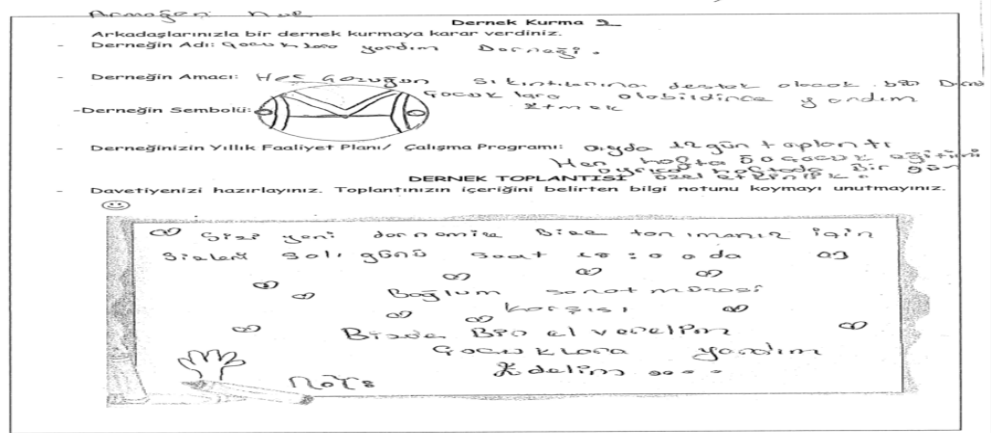 Armağan Nur
Dernek Kurma 2
Arkadaşlarınızla bir dernek kurmaya karar verdiniz.
- Derneğin Adı: Çocuklara yardım Derneği.
- Derneğin Amacı: Her Çocuğun sıkıntılarına destek olacak bir
Çocuklara olabildince yardım
Etmek
-Derneğin Sembolü:
- Derneğinizin Yıllık Faaliyet Planı/ Çalışma Programı: ayda 12 gün toplantı
Her hafta 50 Çocuk eğitimi
ayrıca haftada bir gün
DERNEK TOPLANTISI özel etkinlik.
- Davetiyenizi hazırlayınız. Toplantınızın içeriğini belirten bilgi notunu koymayı unutmayınız.
☺
Sizi yeni dernemize Bize tanımanız için
Sizleri Salı günü saat 18:00 da
Bağlum sanat müzesi
karşısı
Bizde Bir el verelim
Çocuklara yardım
Edelim
Not: